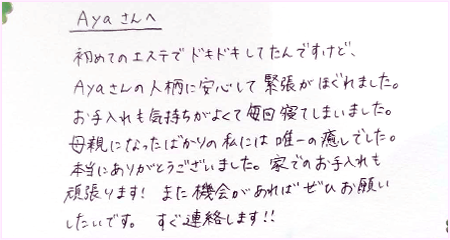 Ayaさんへ
初めてのエステでドキドキしてたんですけど、
Ayaさんの人柄に安心して緊張がほぐれました。
お手入れも気持ちがよくて毎回寝てしまいました。
母親になったばかりの私には唯一の癒しでした。
本当にありがとうございました。家でのお手入れも
頑張ります! また機会があればぜひお願い
したいです。 すぐ連絡します!!